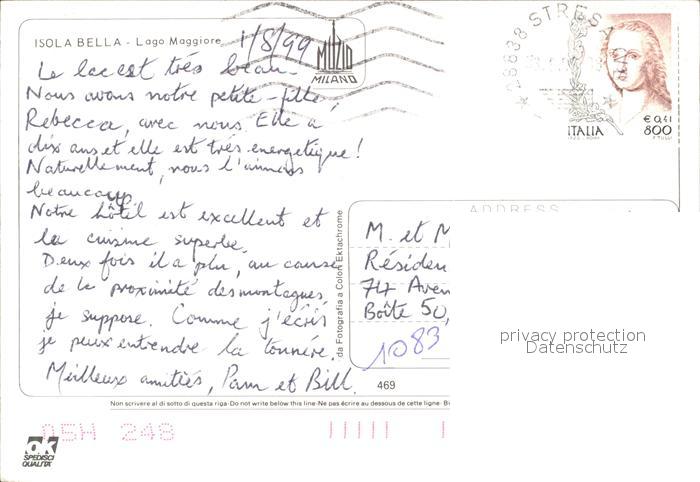 ISOLA BELLA - Lago Maggiore 1/8/99
MUZIO
MILANO
28838 STRESA
Le lac est très beau.
Nous avons notre petite-fille,
Rebecca, avec nous. Elle a
dix ans et elle est très energetique!
Naturellement, nous l'aimons
beaucoup.
Notre hôtel est excellent et
la cuisine superbe.
Deux fois il a plu, au cause
de la proximité des montagnes,
je suppose. Comme j'écris
je peux entendre la tonnère.
Meilleux amitiés, Pam et Bill.
ITALIA
€ 0,41
800
ADDRESS
M. et M
Résiden
74 Aven
Boîte 50,
1083
da Fotografia a Colori Ektachrome
469
privacy protection
Datenschutz
Non scrivere al di sotto di questa riga-Do not write below this line-Ne pas écrire au dessous de cette ligne-
05H 248
OK
SPEDISCI
QUALITA'